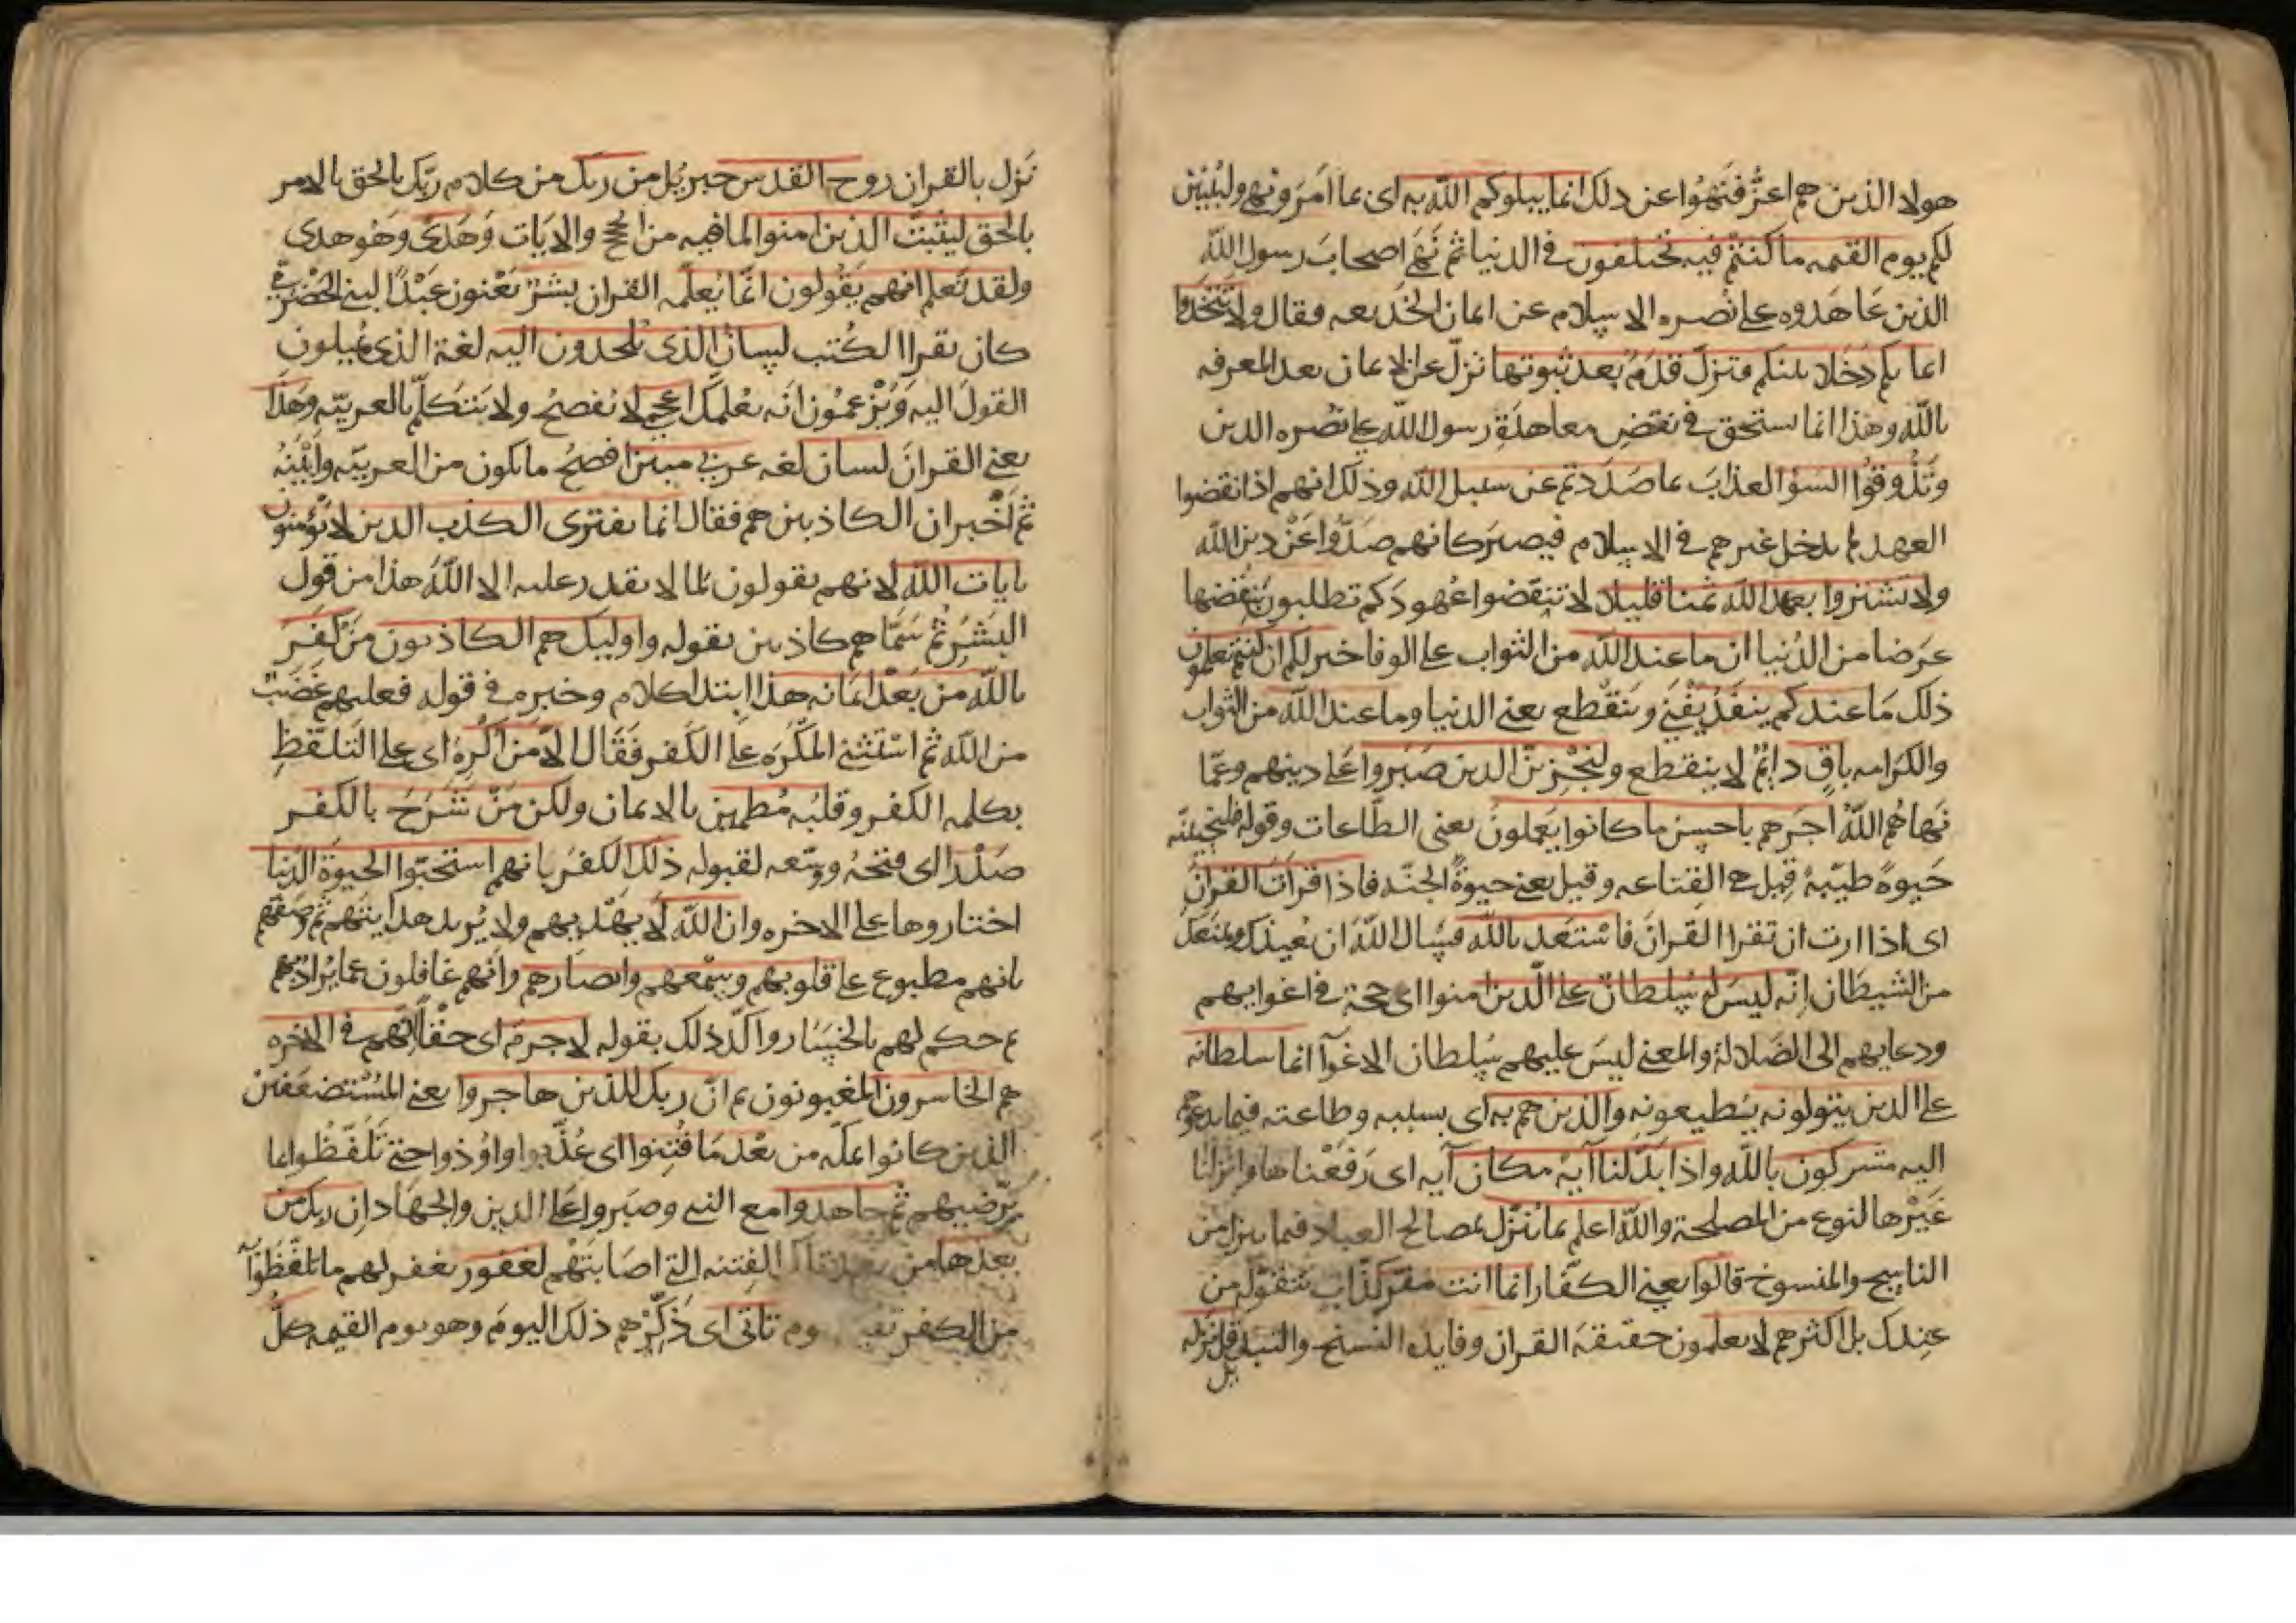 هولا الذين هم اعزُّ فنهُوا عن ذلك انما يبلوكم الله به اى بما امَرَ ونهى وليُبيّننّ
لكم يوم القيمه ما كنتم فيه تختلفون فى الدنيا ثم نَهَى اصحابَ رسول الله
الذين عَاهَدوه على نُصره الاسلام عن ايمان الخديعه فقال ولا تتخذوا
ايمانكم دَخَلا بينكم فتزلّ قدَمٌ بعد ثبوتها تزلّ عن الايمان بعد المعرفه
بالله وهذا انما يستحق فى نقض معاهدَةِ رسول الله على نصره الدين
وتذُوقُوا السؤ العذابَ بما صَدَدتم عن سبيل الله وذلك انهم اذا نقضوا
العهد لم يدخل غيرهم فى الاسلام فيصير كانهم صَدُّوا عَنْ دين الله
ولا تشتروا بعهد الله ثمنا قليلا لا تنقضوا عُهودَكم تطلبون بنقضها
عَرَضا من الدُنيا ان ما عند الله من الثواب على الوفا خير لكم ان كنتم تعلمون
ذلك مَا عندكم ينفَدُ يَفْنَى وينقطع يعنى الدنيا وما عند الله من الثواب
والكرامه باقٍ دايمٌ لا ينقطع ولنَجْزينّ الذين صَبَروا عَلى دينهم وعمّا
نَهاهُم اللهُ اجرَهم باحسن ما كانوا يعملونَ يعنى الطّاعات وقوله فلنحيينّه
حَيوةً طيّبةً قيل هى القناعه وقيل يعنى حيوةَ الجنّه فاذا قرأتَ القرانَ
اى اذا ارت ان تقرا القرانَ فاستَعذ بالله فسَال اللهَ ان يُعيذك ويمنعك
من الشيطان اِنّه ليسَ له سُلطانٌ على الّذين امنوا اى حجة فى اغوايهم
ودعايهم الى الضّلالة والمعنى ليسَ عليهم سُلطان الاغوآ انما سلطانه
على الذين يتولونه يُطيعونه والذين هم به اى بسببه وطاعته فيما يدعوهم
اليه مشركون بالله واذا بدّلنا آيةً مكان آيه اى رَفَعْنا ها وانزلنا
غَيْرها لنوع من المصلحة والله اعلم بما يُنَزّل بمصالح العباد فيما ينزل من
الناسخ والمنسوخ قالوا يعنى الكفّار انما انت مفتر كذّاب تتقوّله من
عندك بل اكثرهم لا يعلمون حقيقة القران وفايده النسخ والتبديل قل نزّله
نزل بالقران روح القدس جبريُل من ربك من كلام ربّك بالحق بالامر
بالحق ليثبتَ الذين امنوا بما فيه من الحُجج والايَات وَهُدىً وهُو هدى
ولقد نعلم انهم يَقُولون انّما يُعلّمه القران بشرٌ يَعْنون عَبْدًا لبنى الحضرمى
كان يقرا الكُتب لسانُ الذى يُلحدون اليه لغة الذى يُميلون
القولَ اليه ويَزعمُون انه يعلمك اعجمى لا يُفصحُ ولا يتكلّم بالعربيّه وهذا
يعنى القرانَ لسان لغه عربى مبين افصحُ ما يكون من العربيّه وابْيَنُهُ
ثم اَخْبر ان الكاذبين هم فقال انما يفترى الكذب الذين لا يؤمنون
بايات الله لانهم يقولون لما لا يقدر عليه الا اللهُ هذا من قول
البَشَرِ ثم سَمّاهم كاذبين بقوله واوليك هم الكاذبون مَن كَفَر
بالله من بَعْد ايمانه هذا ابتدا كلام وخبره فى قوله فعليهم غَضَبٌ
من الله ثم استثنى المكرَه على الكفر فَقَال الّا من اُكرِهَ اى على التّلفّظِ
بكلمه الكفر وقلبُه مُطمين بالايمان ولكن مَنْ شَرَحَ بالكفر
صَدْرا اى فتحهُ ووسّعه لقبوله ذلك الكفرَ بانهم استحبّوا الحيوةَ الدّنيا
اختاروها على الاخره وان الله لا يهْديهم ولا يُريد هدايتَهم ثم وَصَفهم
بانهم مطبوع على قلوبهم وسَمْعهم وابصارهم وانهم غافلون عمّا يُرادُ بهم
ثم حكم لهم بالخسَار واكّد ذلك بقوله لا جرمَ اى حقّاً انّهم فى الاخره
هم الخاسرون المغبونون ثم ان ربك للذين هاجروا يعنى المُسْتضعَفين
الذين كانوا بمكّه من بَعْد مَا فُتِنوا اى عُذّبوا واوُذوا حتى تَلَفّظُوا بما
يُرْضيهم ثم جاهدوا مع النبى وصبَروا عَلى الدين والجهَاد اِن ربك من
بعدها من بعد تلك الفِتنه التى اصَابَتْهُم لغفور يغفر لهم ما تلفّظوا
من الكفر تاتى اى ذَكّرْهم ذلك اليومَ وهو يوم القيمه كلُّ